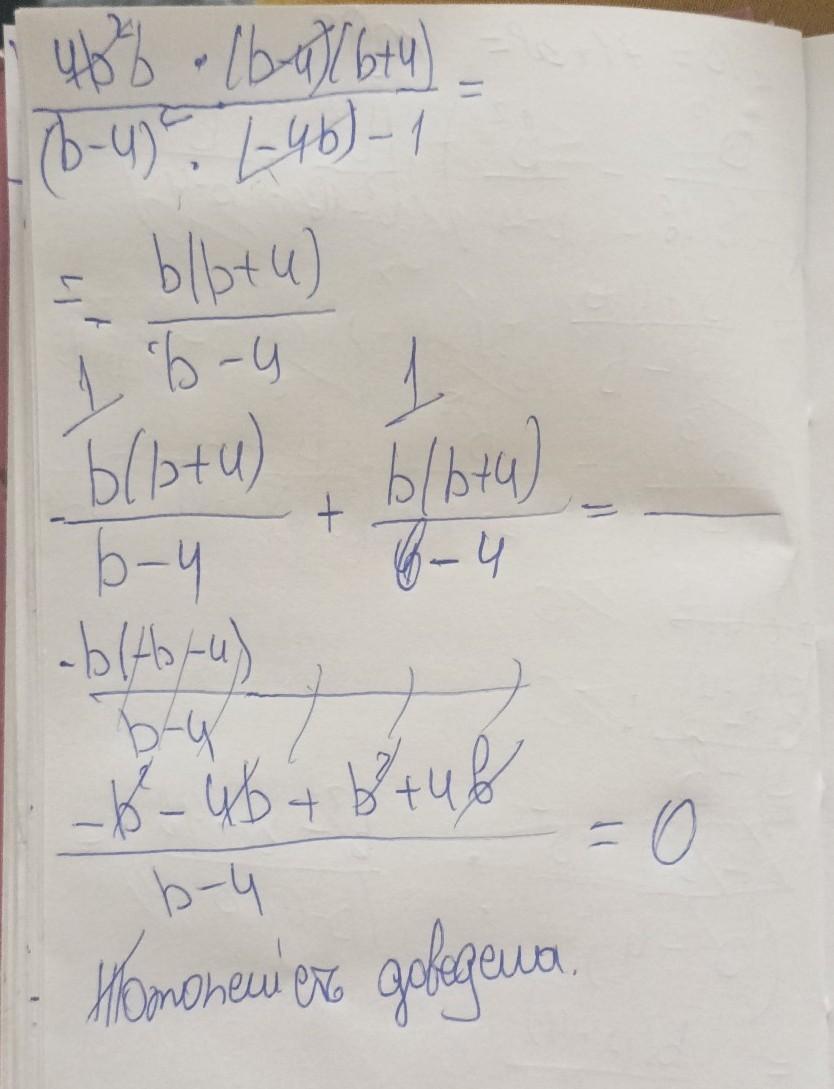 4b²b · (b-4)(b+4)
=
(b-4)² · (-4b) - 1
= - b(b+4)
b - 4
1 1
- b(b+4) + b(b+4) =
b - 4 b - 4
-b(+b-4)
b-4
-b² - 4b + b² + 4b = 0
b-4
Тотожність доведена.